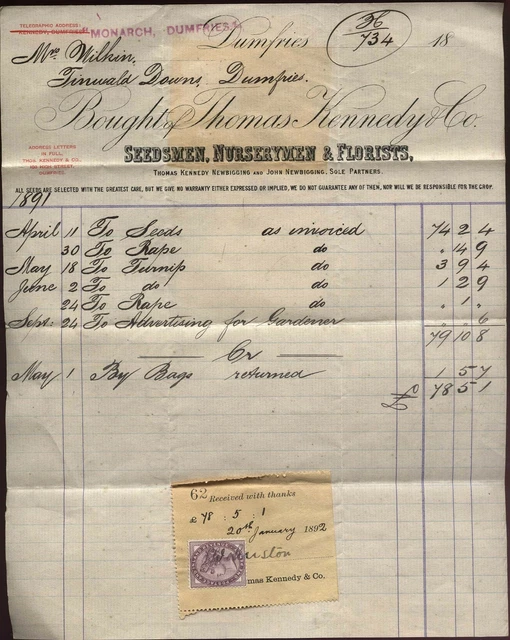 TELEGRAPHIC ADDRESS:
KENNEDY, DUMFRIES
MONARCH, DUMFRIES.
36
734
Dumfries 18
Mrs Wilkin,
Tinwald Downs, Dumfries.
Bought of Thomas Kennedy & Co.
ADDRESS LETTERS
IN FULL,
THOS. KENNEDY & CO.,
HIGH STREET,
DUMFRIES.
SEEDSMEN, NURSERYMEN & FLORISTS,
THOMAS KENNEDY NEWBIGGING AND JOHN NEWBIGGING, SOLE PARTNERS.
ALL SEEDS ARE SELECTED WITH THE GREATEST CARE, BUT WE GIVE NO WARRANTY EITHER EXPRESSED OR IMPLIED, WE DO NOT GUARANTEE ANY OF THEM, NOR WILL WE BE RESPONSIBLE FOR THE CROP.
1891
April 11 To Seeds as invoiced 74 2 4
30 To Rape do " 14 9
May 18 To Turnip do 3 9 4
June 2 To do do 1 2 9
24 To Rape do " 1 "
Sept: 24 To Advertising for Gardener " " 6
79 10 8
Cr
May 1 By Bags returned 1 5 7
£ 78 5 1
62 Received with thanks
£ 78 : 5 : 1
20th January 1892
mas Kennedy & Co.